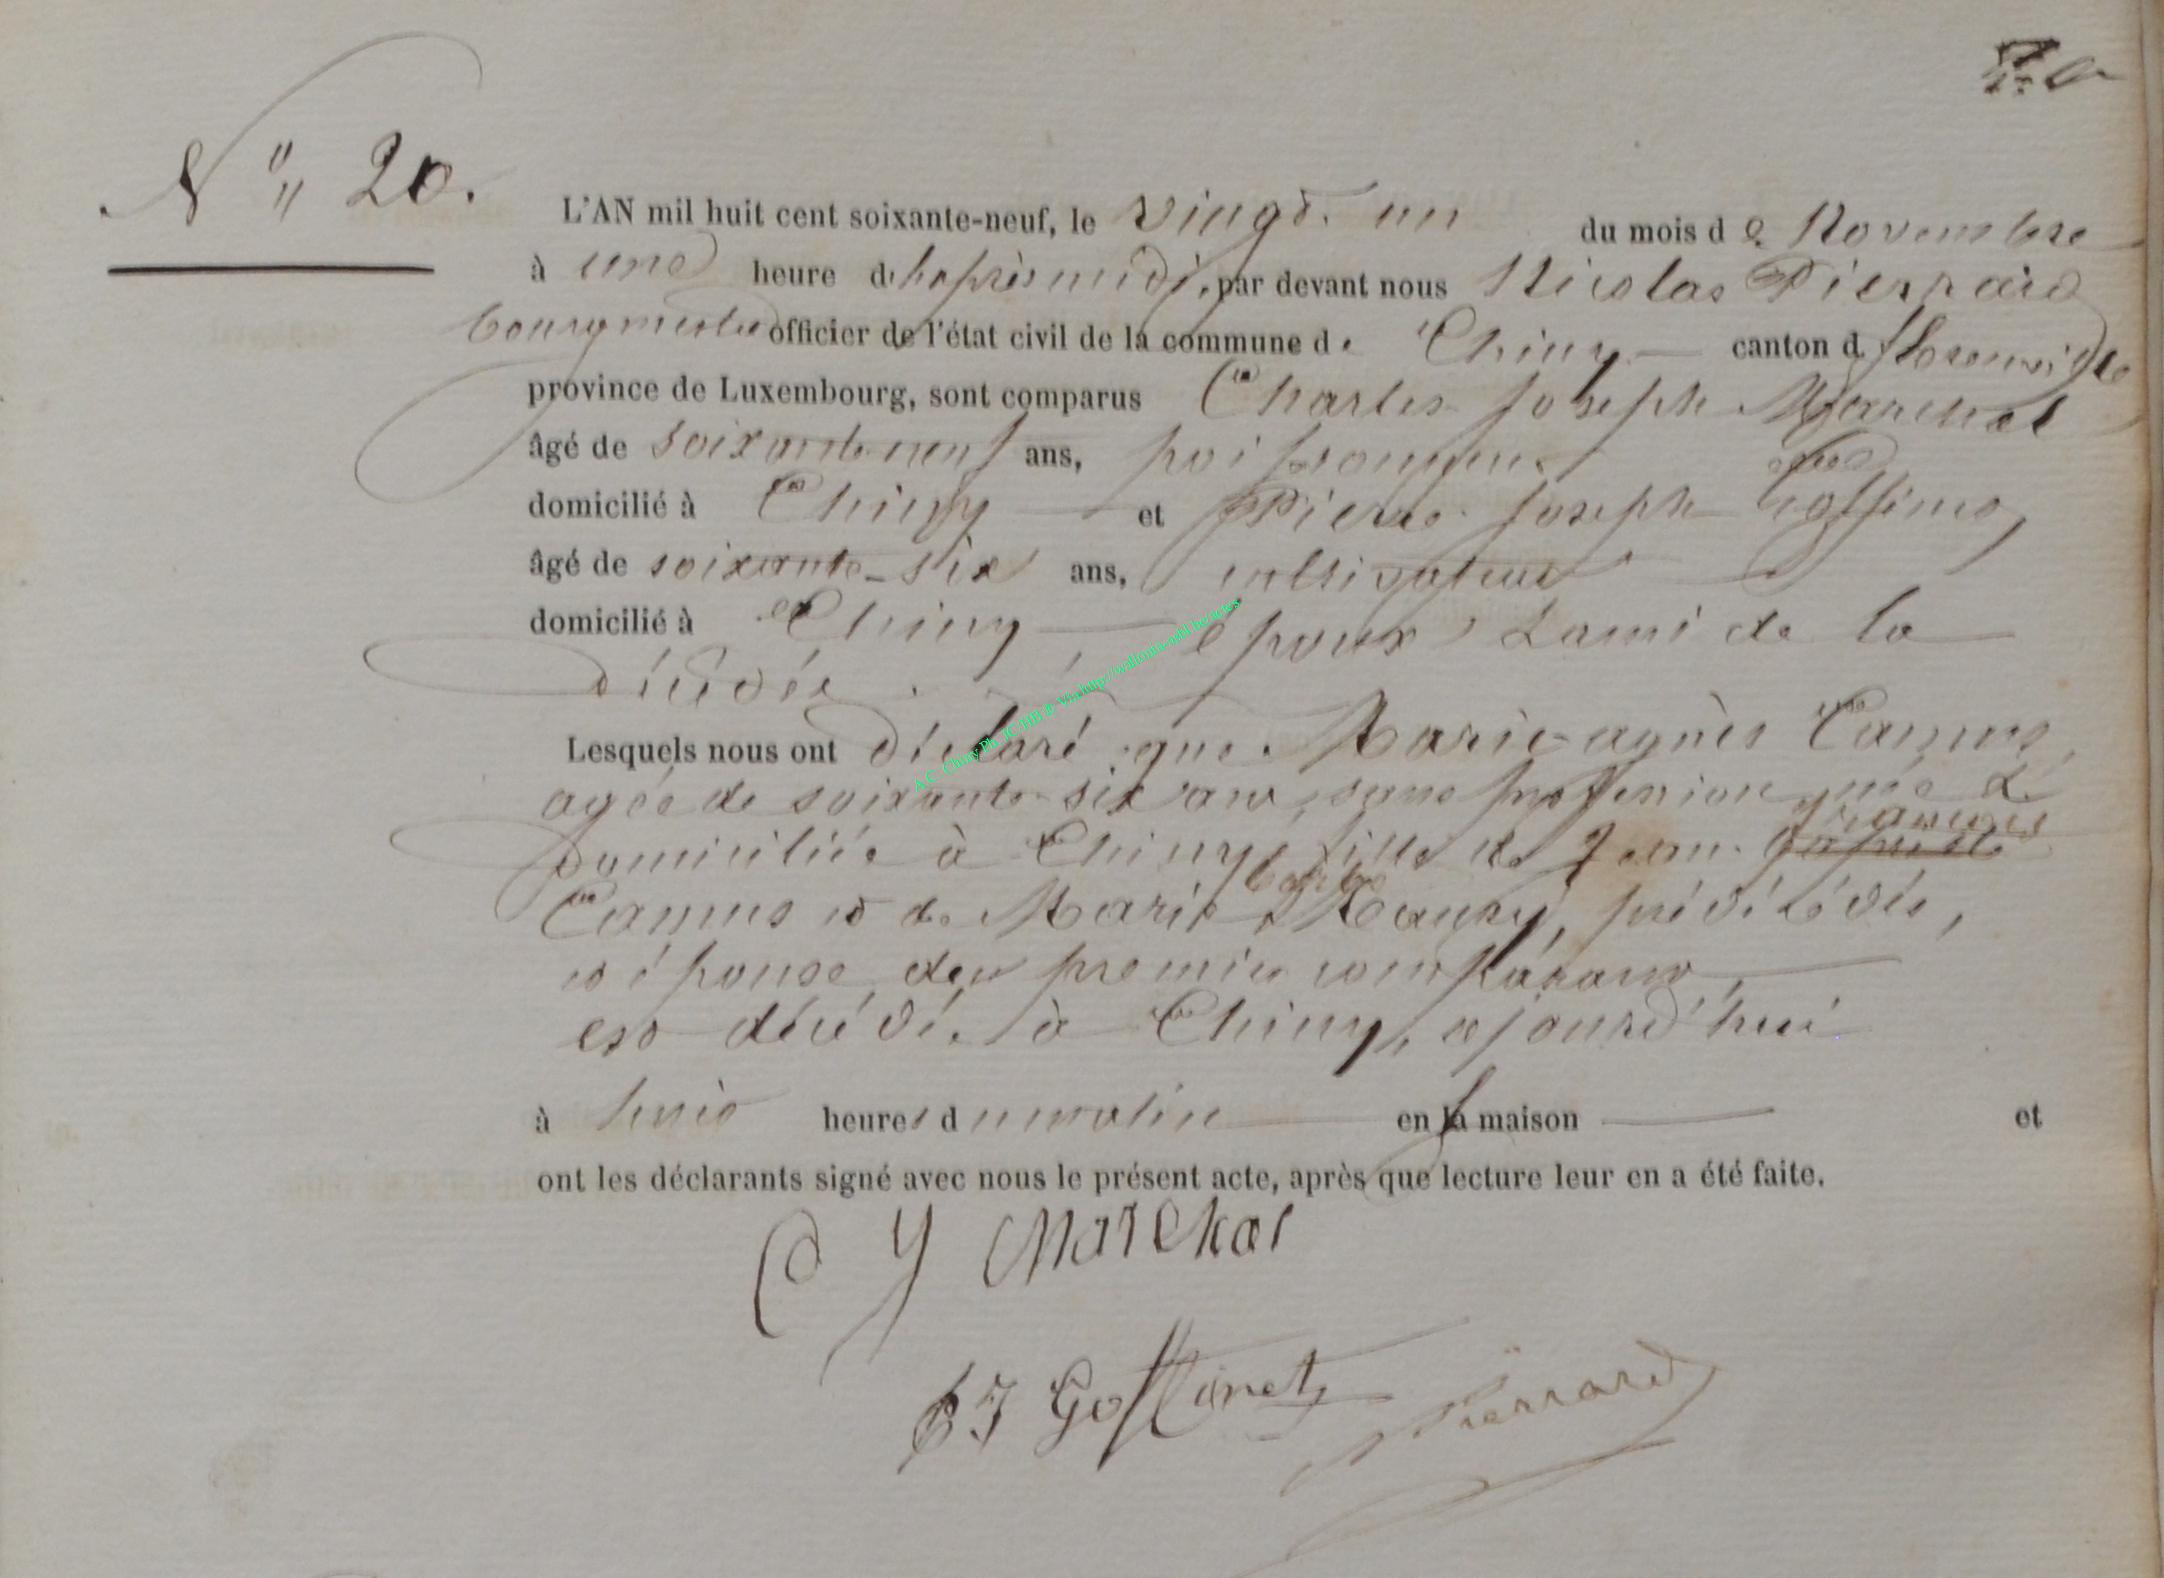 N° 20.
L'AN mil huit cent soixante-neuf, le vingt-un du mois de Novembre
à une heure de l'après midi, par devant nous Nicolas Pierrard
bourgmestre officier de l'état civil de la commune de Chiny canton de florenville
province de Luxembourg, sont comparus Charles Joseph Marchal
âgé de soixante-neuf ans, poissonnier
domicilié à Chiny et Pierre Joseph Goffinet,
âgé de soixante-six ans, cultivateur
domicilié à Chiny, époux & ami de la
décédée.
Lesquels nous ont déclaré que Marie-agnès Camus,
agée de soixante-six ans, sans profession, née &
françois
domiciliée à Chiny, fille de Jean
barbe
Camus et de Marie Mauxy, prédécédés,
et épouse du premier comparant,
est décédée à Chiny, ajourd'hui
à huit heures du matin en la maison et
ont les déclarants signé avec nous le présent acte, après que lecture leur en a été faite.
C J Marchal
PJ Goffinet Pierrard
A.C. Chiny Ph. JC HB & Vi http://wallonia-asbl.be/actes